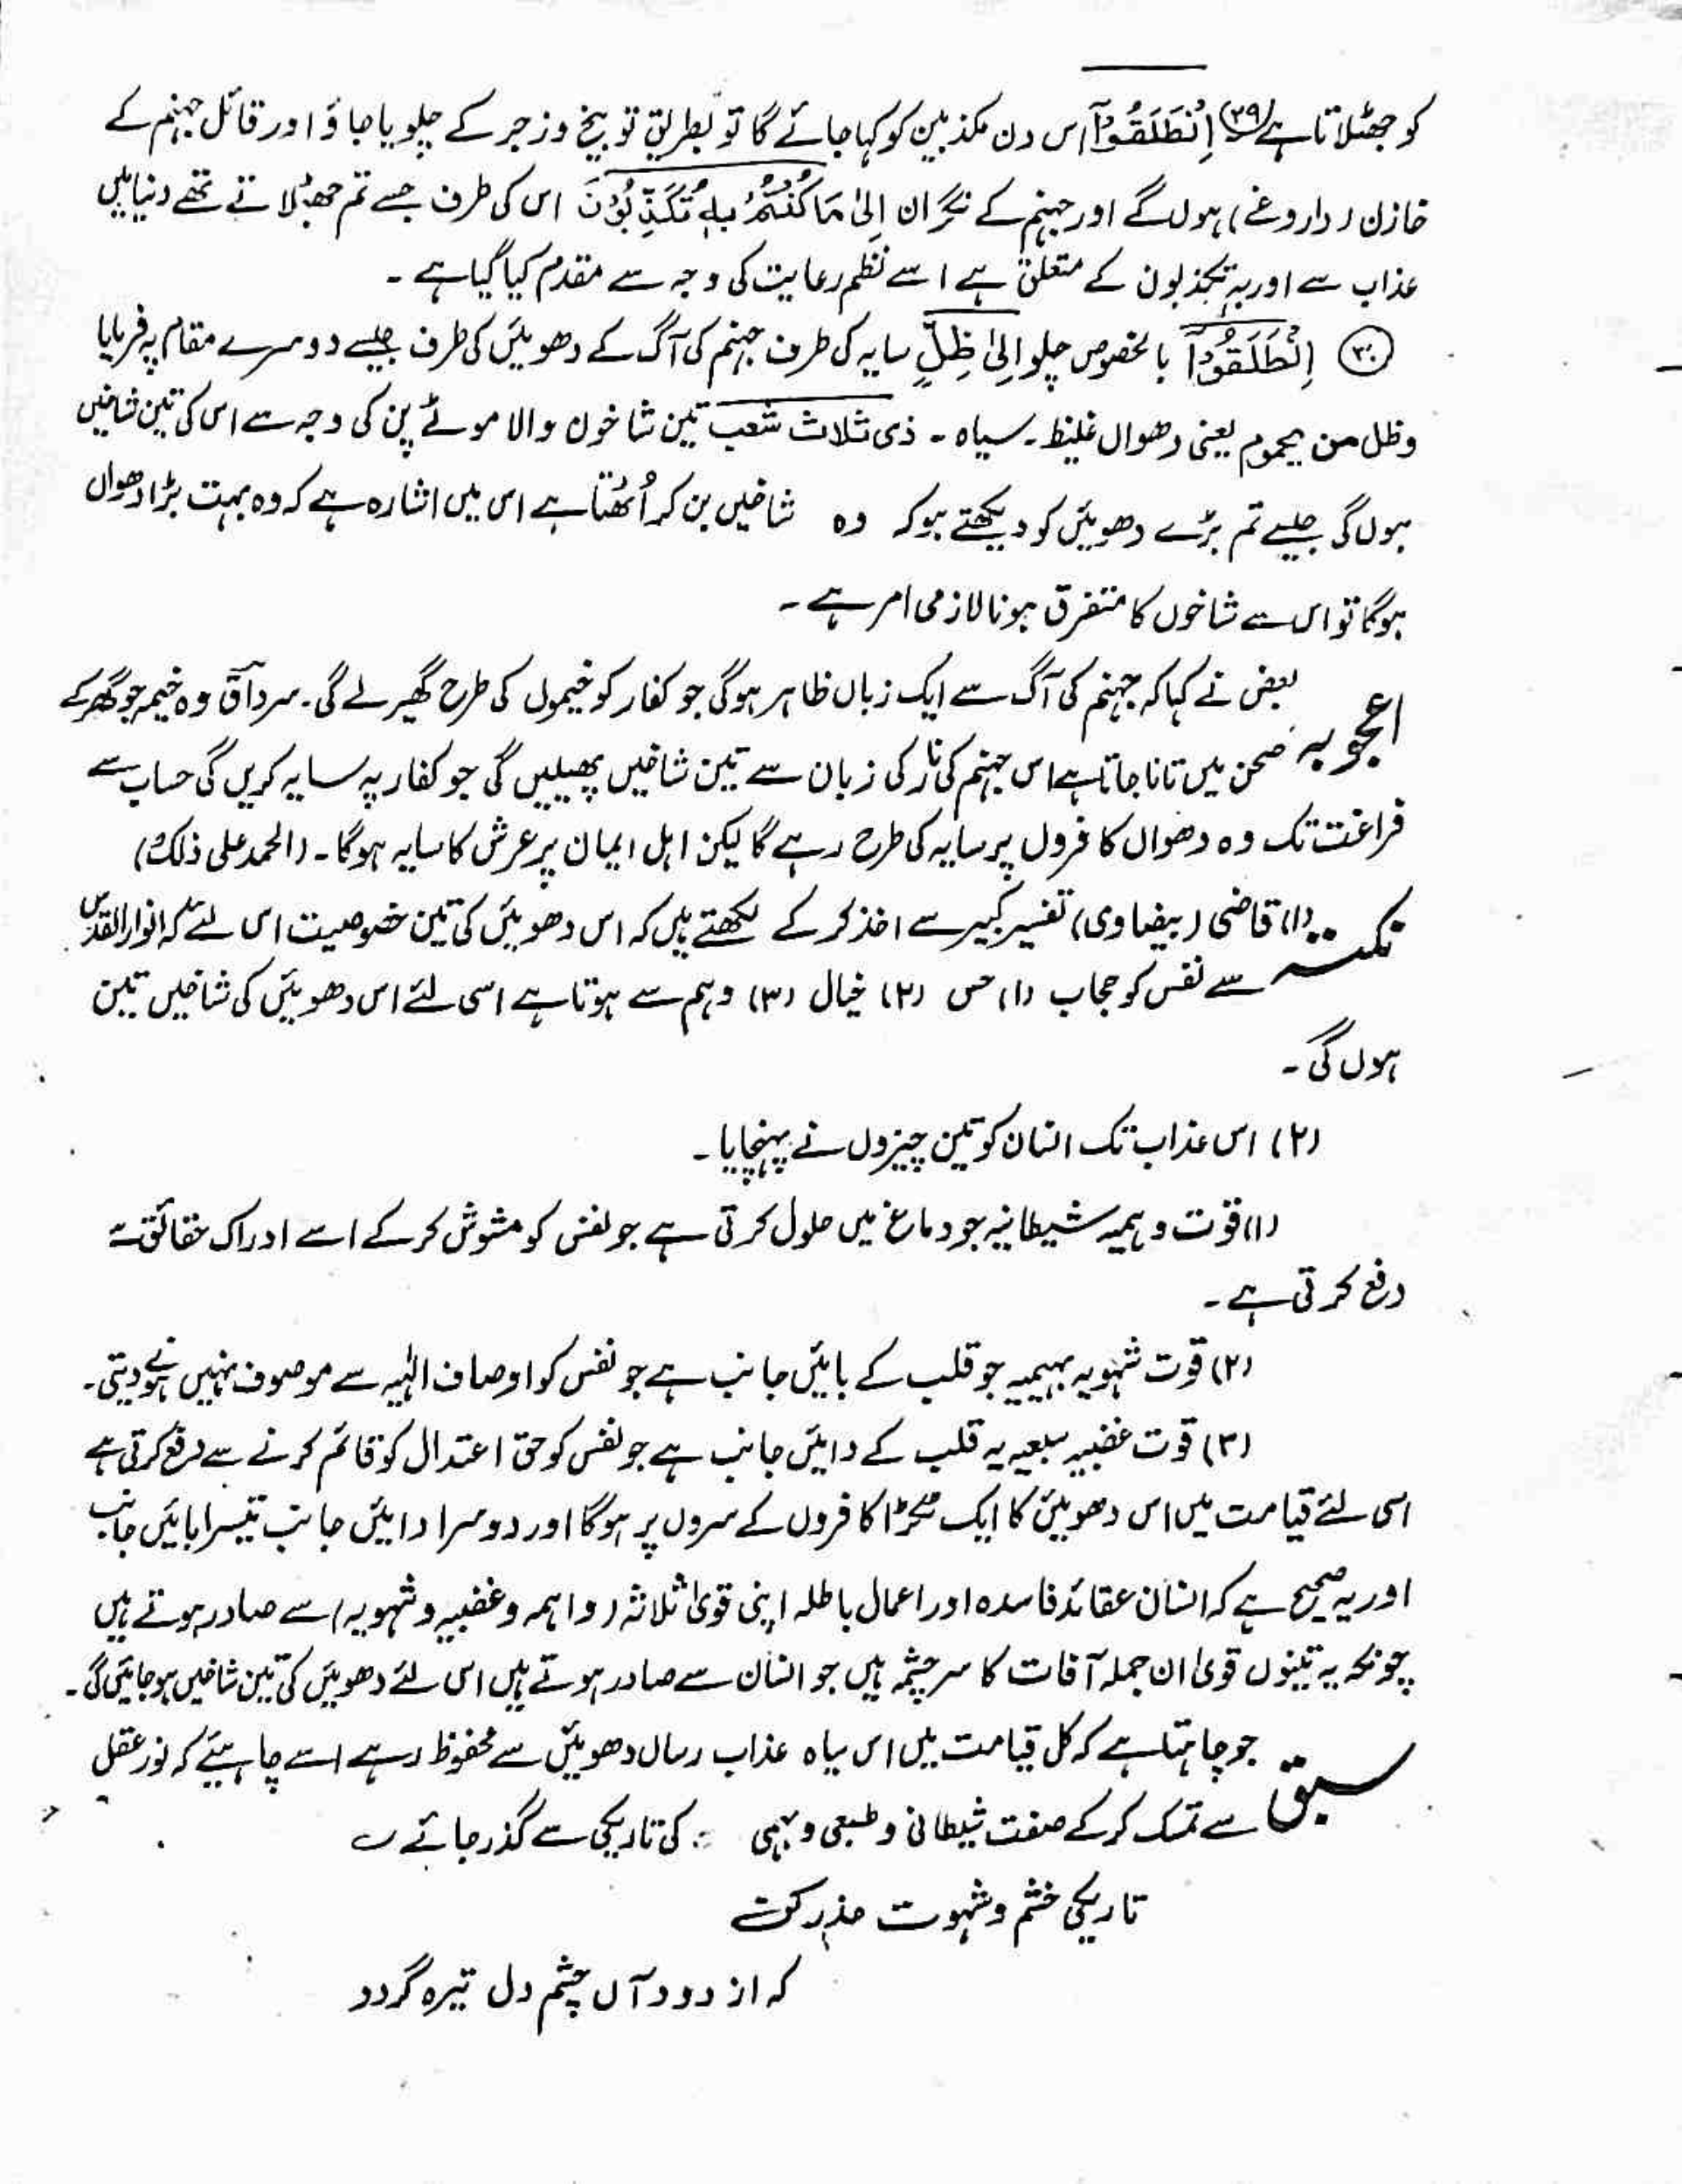 کو جھٹلاتا ہے (۲۹) اِنْطَلَقُوْۤا اس دن مکذبین کو کہا جائے گا تو بطریق توبیخ وزجر کے چلو یا جاؤ اور قائل جہنم کے
خازن (داروغے) ہوں گے اور جہنم کے نگران اِلیٰ مَا كُنْتُمْ بِهٖ تُكَذِّبُوْنَ اس کی طرف جسے تم جھٹلاتے تھے دنیا میں
عذاب سے اور بہ تکذبون کے متعلق ہے اسے نظم رعایت کی وجہ سے مقدم کیا گیا ہے ۔
(۳۰) اِنْطَلَقُوْۤا بالخصوص چلو اِلیٰ ظِلٍّ سایہ کی طرف جہنم کی آگ کے دھوئیں کی طرف جیسے دوسرے مقام پہ فرمایا
وظل من یحموم یعنی دھواں غلیظ ۔ سیاہ ۔ ذی ثلاث شعب تین شاخوں والا موٹے پن کی وجہ سے اس کی تین شاخیں
ہوں گی جیسے تم بڑے دھوئیں کو دیکھتے ہو کہ وہ شاخیں بن کر اُٹھتا ہے اس میں اشارہ ہے کہ وہ بہت بڑا دھواں
ہوگا تو اس سے شاخوں کا متفرق ہونا لازمی امر ہے ۔
اعجوبہ بعض نے کہا کہ جہنم کی آگ سے ایک زبان ظاہر ہوگی جو کفار کو خیموں کی طرح گھیر لے گی ۔ سرداق وہ خیمہ جو گھر کے
صحن میں تانا جاتا ہے اس جہنم کی نار کی زبان سے تین شاخیں پھیلیں گی جو کفار پہ سایہ کریں گی حساب سے
فراغت تک وہ دھواں کافروں پر سایہ کی طرح رہے گا لیکن اہل ایمان پر عرش کا سایہ ہوگا ۔ (الحمد علی ذلک)
نکتہ (۱) قاضی (بیضاوی) تفسیر کبیر سے اخذ کر کے لکھتے ہیں کہ اس دھوئیں کی تین خصوصیت اس لئے کہ انوار القدس
سے نفس کو حجاب (۱) حس (۲) خیال (۳) وہم سے ہوتا ہے اسی لئے اس دھوئیں کی شاخیں تین
ہوں گی ۔
(۲) اس عذاب تک انسان کو تین چیزوں نے پہنچایا ۔
(۱) قوت وہمیہ شیطانیہ جو دماغ میں حلول کرتی ہے جو نفس کو مشوش کر کے اسے ادراک حقائق سے
دفع کرتی ہے ۔
(۲) قوت شہویہ بہیمیہ جو قلب کے بائیں جانب ہے جو نفس کو اوصاف الٰہیہ سے موصوف نہیں ہونے دیتی ۔
(۳) قوت غضبیہ سبعیہ یہ قلب کے دائیں جانب ہے جو نفس کو حق اعتدال کو قائم کرنے سے دفع کرتی ہے
اسی لئے قیامت میں اس دھوئیں کا ایک ٹکڑا کافروں کے سروں پر ہوگا اور دوسرا دائیں جانب تیسرا بائیں جانب
اور یہ صحیح ہے کہ انسان عقائد فاسدہ اور اعمال باطلہ اپنی قویٰ ثلاثہ (واہمہ و غضبیہ و شہویہ) سے صادر ہوتے ہیں
چونکہ یہ تینوں قویٰ ان جملہ آفات کا سرچشمہ ہیں جو انسان سے صادر ہوتے ہیں اس لئے دھوئیں کی تین شاخیں ہو جائیں گی ۔
سبق جو چاہتا ہے کہ کل قیامت میں اس سیاہ عذاب رساں دھوئیں سے محفوظ رہے اسے چاہیئے کہ نور عقل
سے تمسک کر کے صفت شیطانی و طبعی و بہمی کی تاریکی سے گذر جائے
تاریکی خشم و شہوت حذر کن
کہ از دود آں چشم دل تیرہ گردد